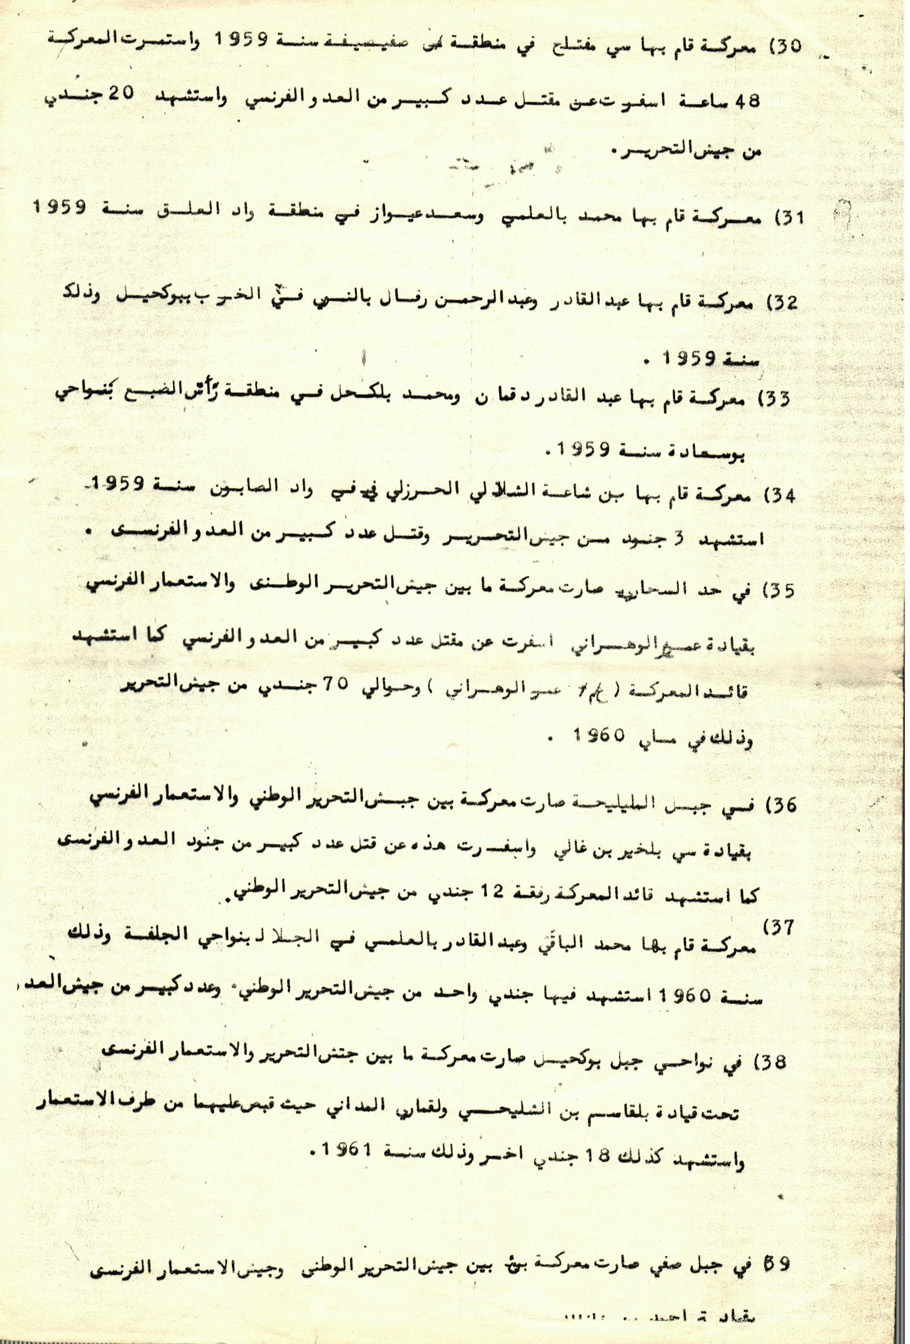 30) معركة قام بها سي مفتاح في منطقة صفيصيفة سنة 1959 واستمرت المعركة
48 ساعة اسفرت عن مقتل عدد كبير من العدو الفرنسي واستشهد 20 جندي
من جيش التحرير .
31) معركة قام بها محمد بالعلمي وسعد عيواز في منطقة واد العلق سنة 1959
32) معركة قام بها عبد القادر وعبد الرحمن رفال بالنبي في الخرب ببوكحيل وذلك
سنة 1959 .
33) معركة قام بها عبد القادر دقمان ومحمد بلكحل في منطقة رأس الضبع بنواحي
بوسعادة سنة 1959.
34) معركة قام بها بن شاعة الشلالي الحرزلي في واد الصابون سنة 1959
استشهد 3 جنود من جيش التحرير وقتل عدد كبير من العدو الفرنسى .
35) في حد السحاري صارت معركة ما بين جيش التحرير الوطنى والاستعمار الفرنسي
بقيادة عمر الوهراني اسفرت عن مقتل عدد كبير من العدو الفرنسي كما استشهد
قائد المعركة ( عمر الوهراني ) وحوالي 70 جندي من جيش التحرير
وذلك في ماي 1960 .
36) في جبل المليليحة صارت معركة بين جيش التحرير الوطني والاستعمار الفرنسي
بقيادة سي بلخير بن غالي واسفرت هذه عن قتل عدد كبير من جنود العدو الفرنسى
كما أستشهد قائد المعركة رفقة 12 جندي من جيش التحرير الوطني.
37) معركة قام بها محمد الباقي وعبد القادر بالعلمي في الجلال بنواحي الجلفة وذلك
سنة 1960 استشهد فيها جندي واحد من جيش التحرير الوطني وعدد كبير من جيش العدو
38) في نواحي جبل بوكحيل صارت معركة ما بين جتش التحرير والاستعمار الفرنسى
تحت قيادة بلقاسم بن الشليحي ولقماري المداني حيث قبض عليهما من طرف الاستعمار
واستشهد كذلك 18 جندي اخر وذلك سنة 1961.
39 في جبل صفي صارت معركة بين جيش التحرير الوطنى وجيش الاستعمار الفرنسى
بقيادة احمد